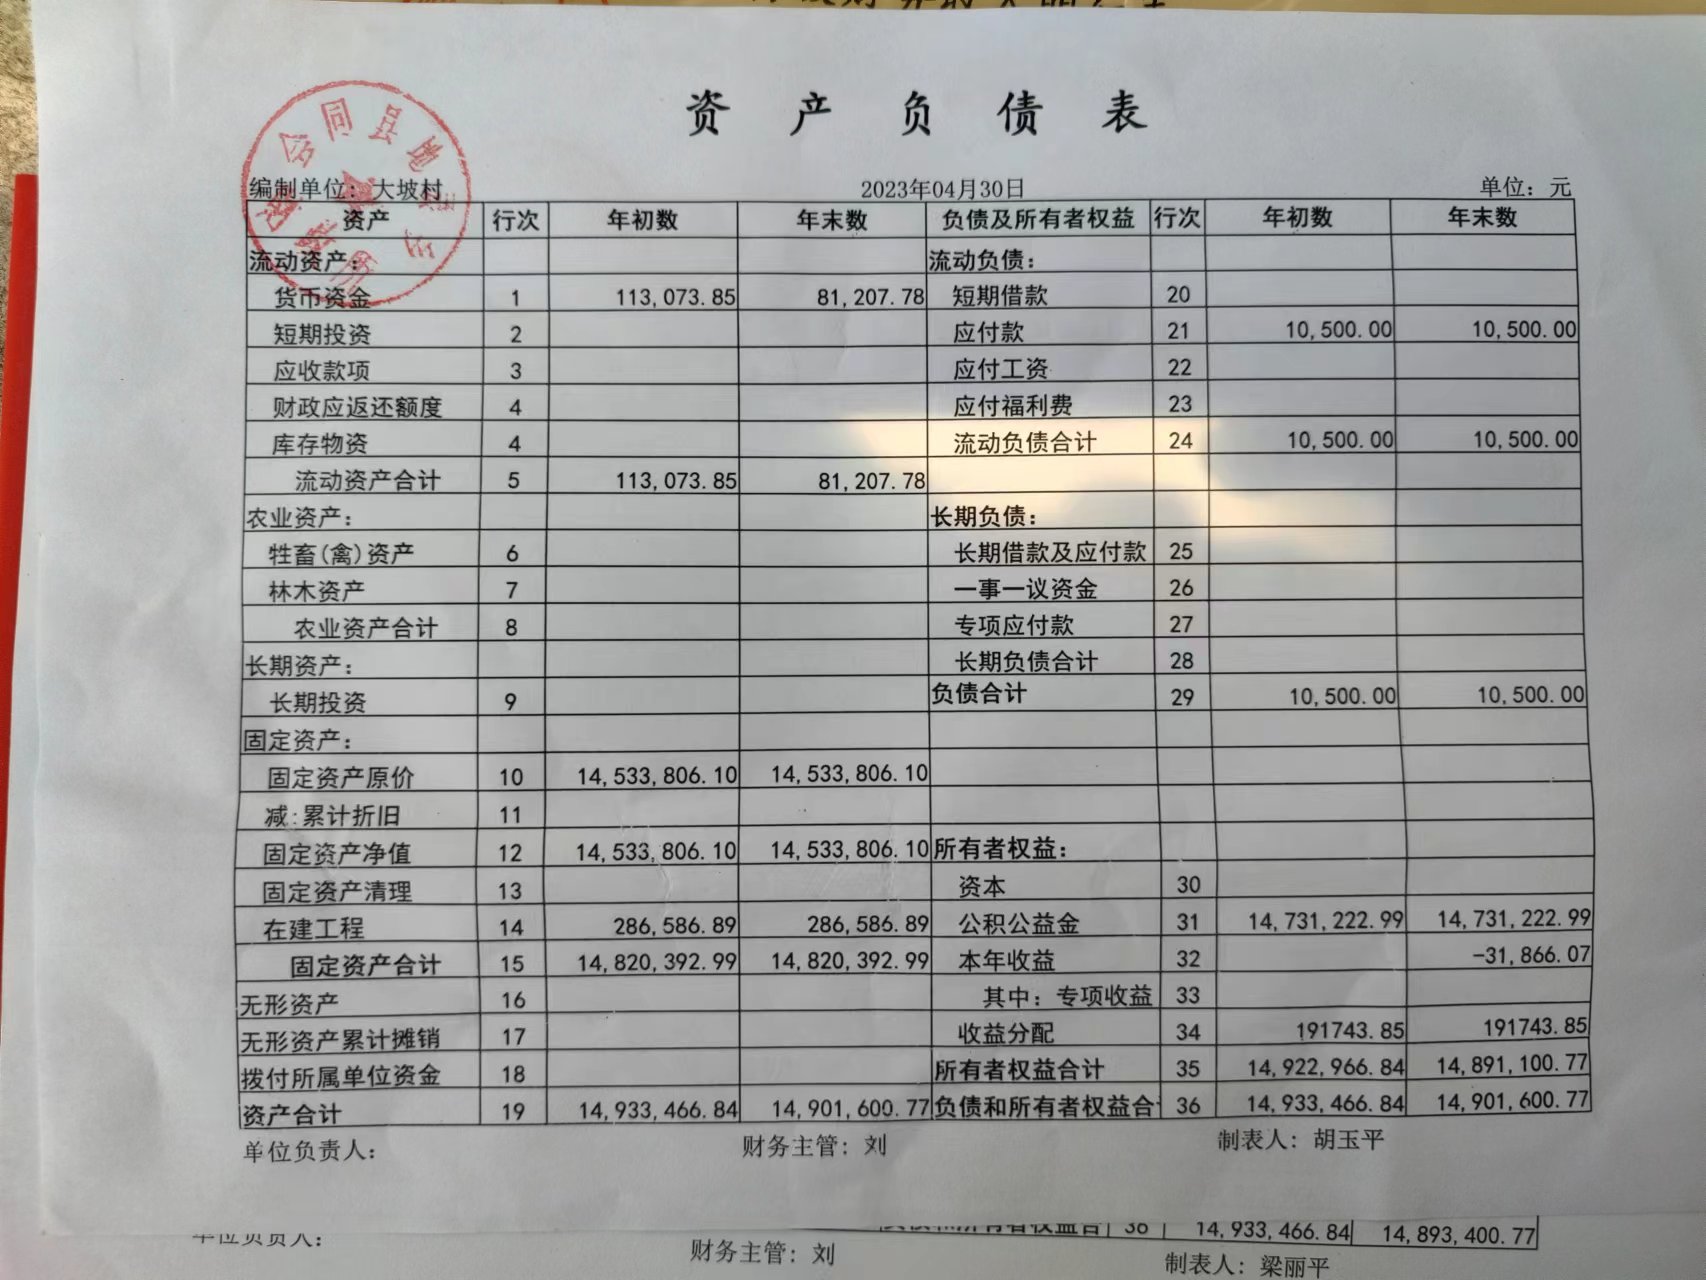 资产负债表
编制单位：大坡村 2023年04月30日 单位：元
资产 行次 年初数 年末数 负债及所有者权益 行次 年初数 年末数
流动资产： 流动负债：
货币资金 1 113,073.85 81,207.78 短期借款 20
短期投资 2 应付款 21 10,500.00 10,500.00
应收款项 3 应付工资 22
财政应返还额度 4 应付福利费 23
库存物资 4 流动负债合计 24 10,500.00 10,500.00
流动资产合计 5 113,073.85 81,207.78
农业资产： 长期负债：
牲畜(禽)资产 6 长期借款及应付款 25
林木资产 7 一事一议资金 26
农业资产合计 8 专项应付款 27
长期资产： 长期负债合计 28
长期投资 9 负债合计 29 10,500.00 10,500.00
固定资产：
固定资产原价 10 14,533,806.10 14,533,806.10
减:累计折旧 11
固定资产净值 12 14,533,806.10 14,533,806.10 所有者权益：
固定资产清理 13 资本 30
在建工程 14 286,586.89 286,586.89 公积公益金 31 14,731,222.99 14,731,222.99
固定资产合计 15 14,820,392.99 14,820,392.99 本年收益 32 -31,866.07
无形资产 16 其中：专项收益 33
无形资产累计摊销 17 收益分配 34 191743.85 191743.85
拨付所属单位资金 18 所有者权益合计 35 14,922,966.84 14,891,100.77
资产合计 19 14,933,466.84 14,901,600.77 负债和所有者权益合 36 14,933,466.84 14,901,600.77
单位负责人： 财务主管：刘 制表人：胡玉平
36 14,933,466.84 14,893,400.77
单位负责人： 财务主管：刘 制表人：梁丽平